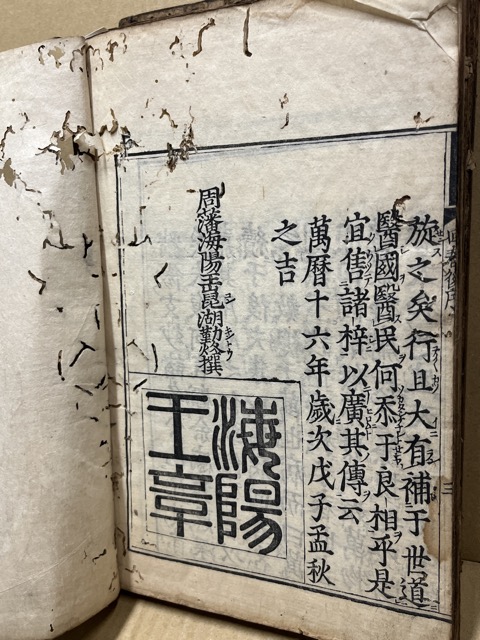 旋之矣行且大有補于世道
醫國醫民何忝于良相乎是
宜售諸梓以廣其傳云
萬曆十六年歲次戊子孟秋
之吉
周藩海陽王昆湖勤烄撰
海陽
王章
三